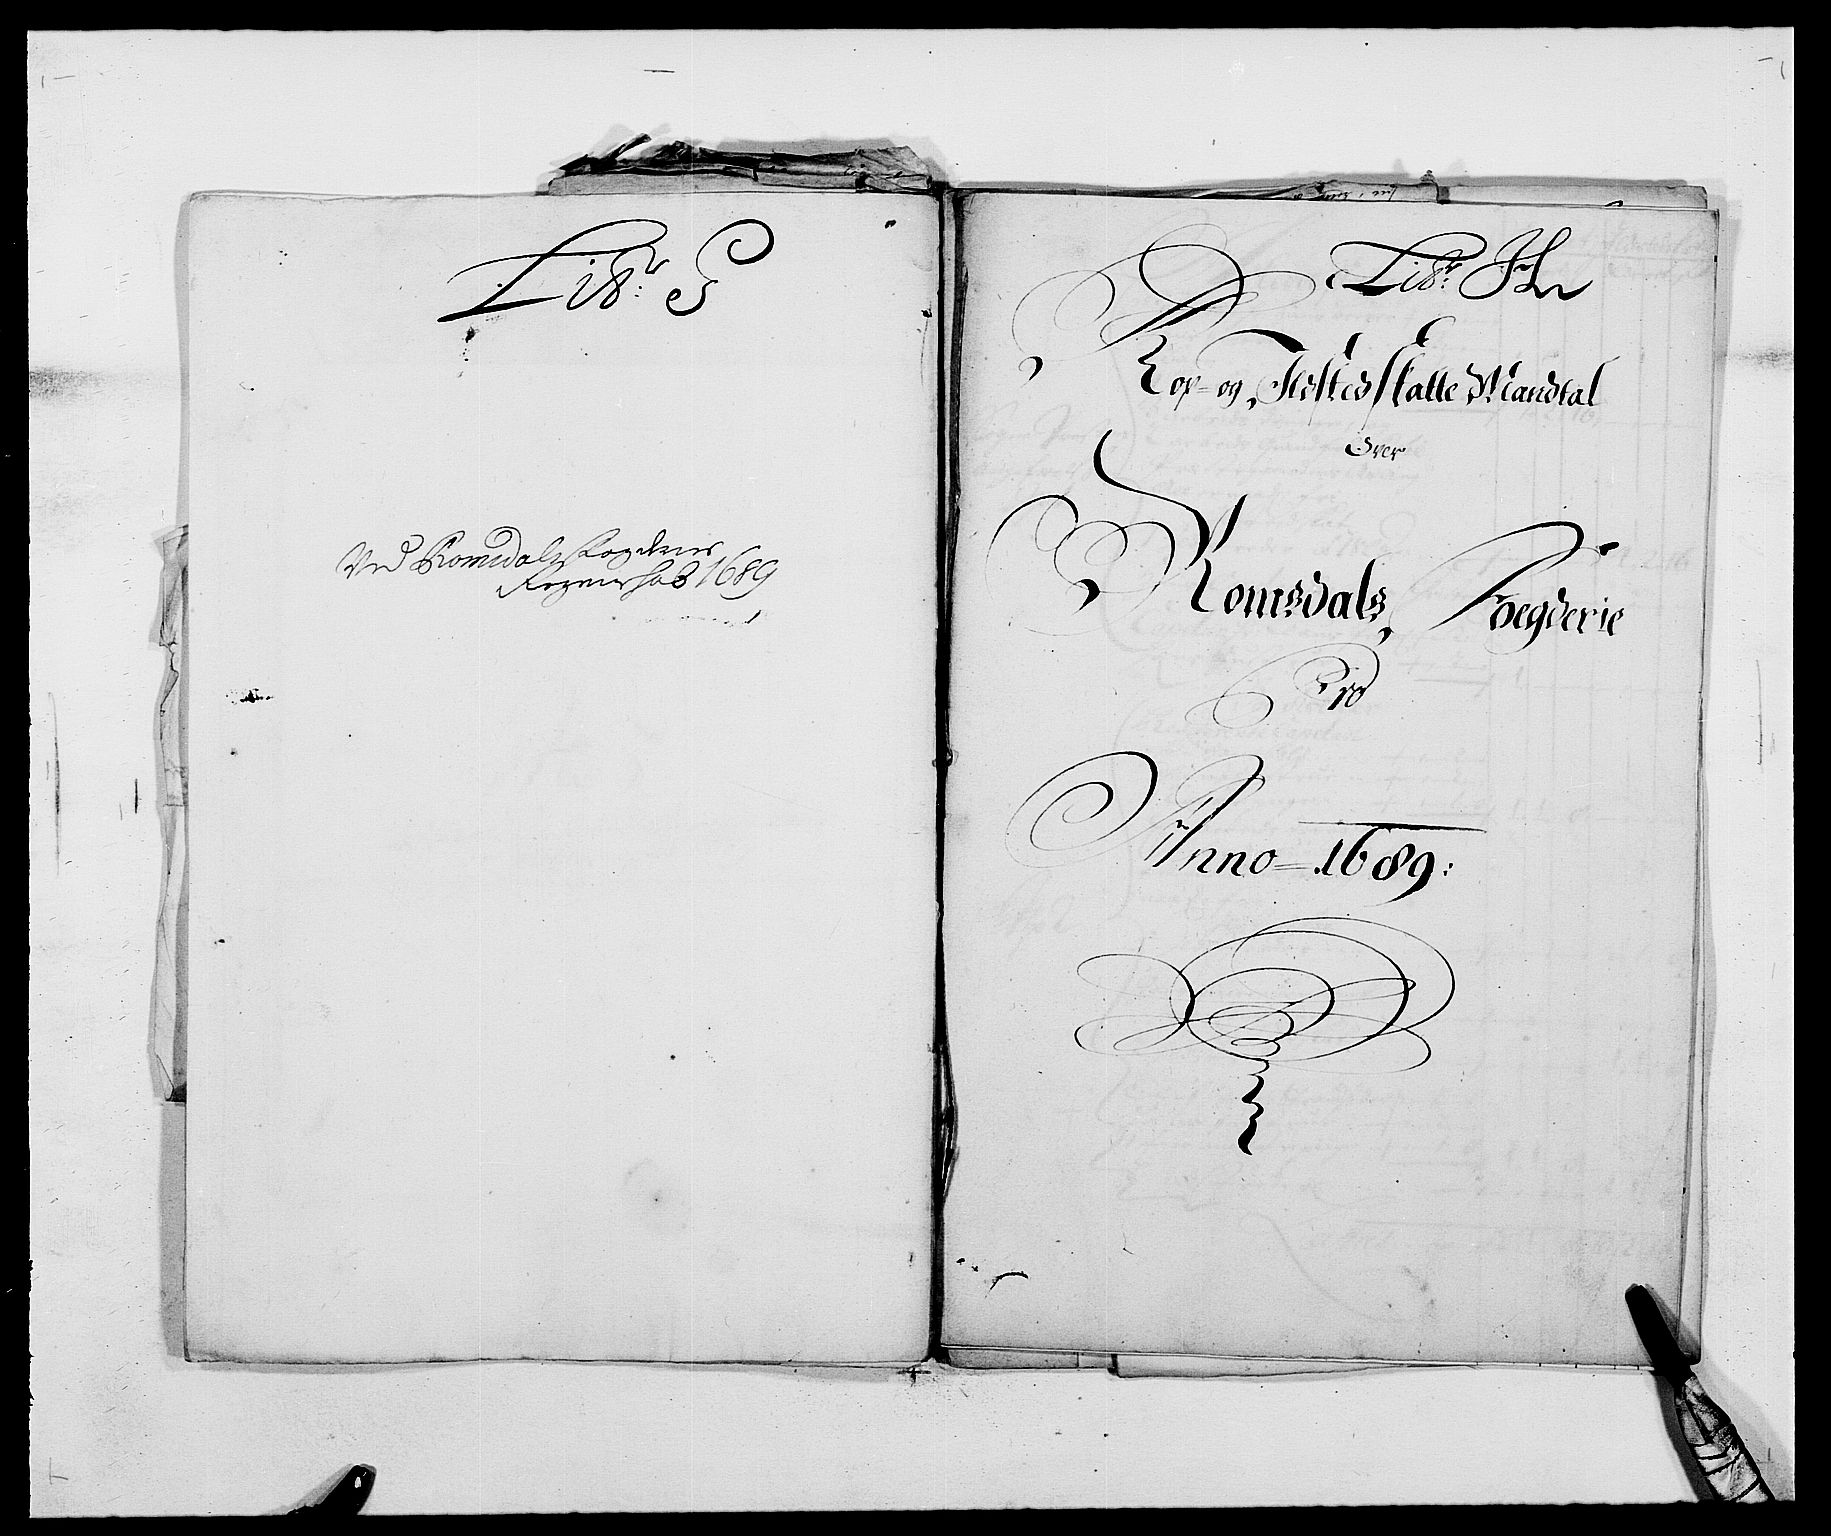 Litr: G
Ved Romsdals Fogderies
Regenskab 1689
Litr: H
Kop- og Ildsted Skatte Mandtal
Over
Romsdals Foegderie
Pro
Anno 1689: